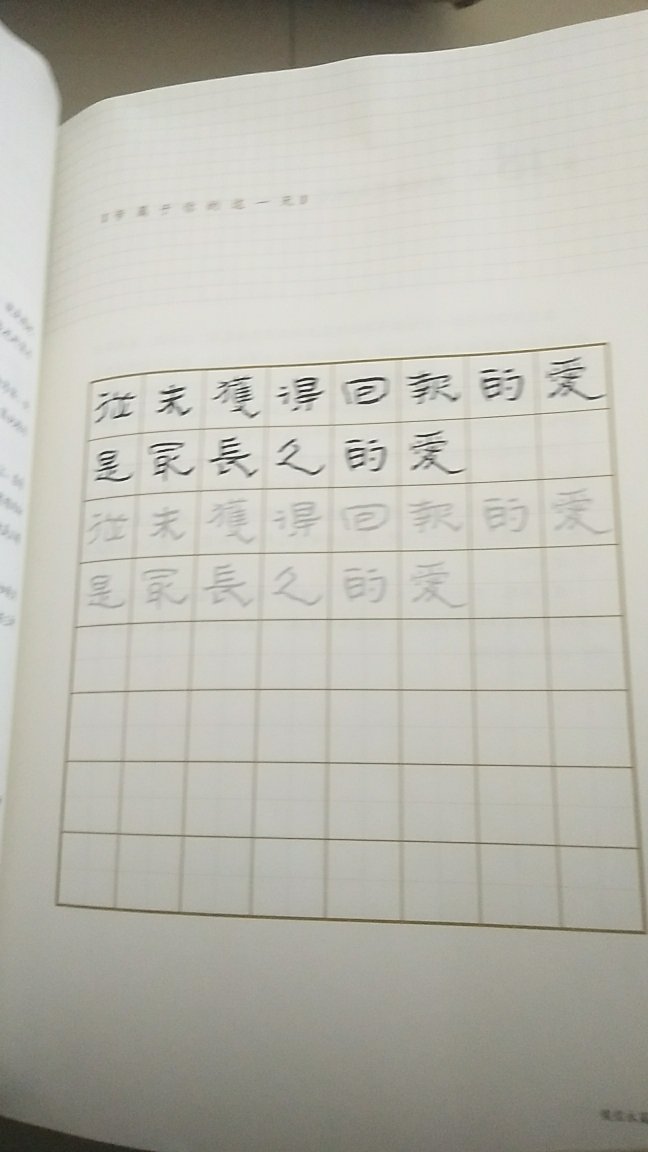 從未獲得回報的愛
是最長久的愛
從未獲得回報的愛
是最長久的愛